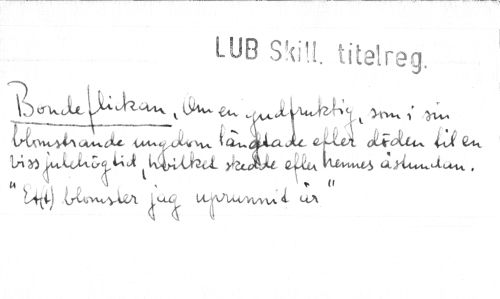 LUB Skill. titelreg.
Bondeflickan, Om en gudfruktig, som i sin
blomstrande ungdom längtade efter döden til en
viss julehögtid, hvilket skedde efter hennes åstundan.
"Et(t) blomster jag uprunnit är"